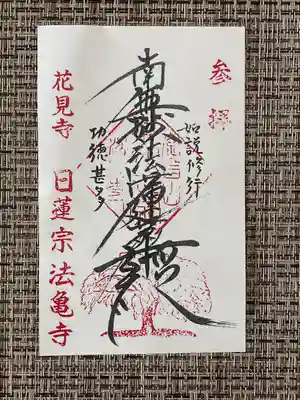 参拝
如説修行
南無妙法蓮華経
功徳甚多
花見寺 日蓮宗 法亀寺